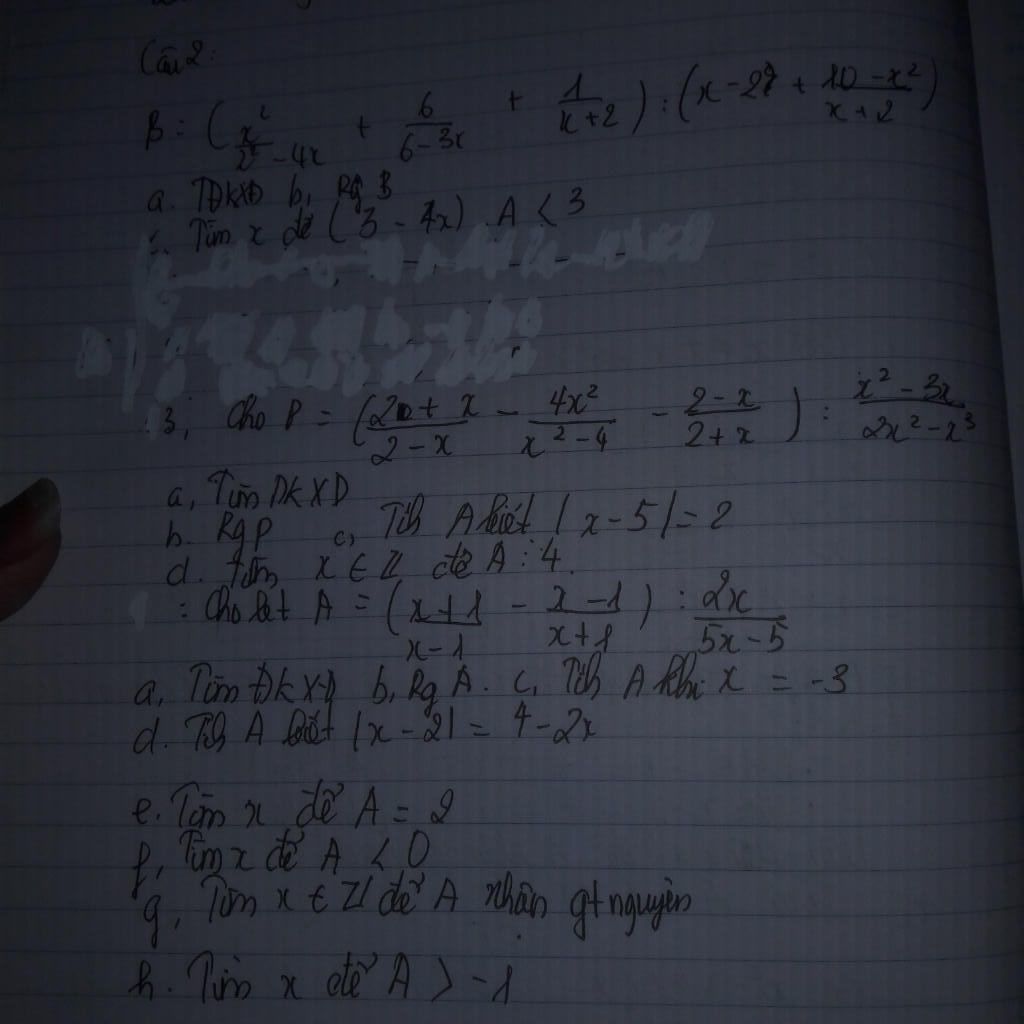 Câu 2:
B = ( x²/x³ - 4x + 6/6 - 3x + 1/x + 2 ) : ( x - 2 + 10 - x²/x + 2 )
a. TĐKXĐ b, Rg B
Tìm x để ( 3 - 4x ) . A < 3
3, Cho P = ( 2 + x/2 - x - 4x²/x² - 4 - 2 - x/2 + x ) : x² - 3x/2x² - x³
a, Tìm ĐKXĐ
b. Rg P c, Tíh A biết | x - 5 | = 2
d. tìm x ∈ Z để A ⋮ 4.
: Cho bt A = ( x + 1/x - 1 - x - 1/x + 1 ) : 2x/5x - 5
a, Tìm ĐKXĐ b, Rg A. c, Tíh A khi x = -3
d. Tíh A biết | x - 2 | = 4 - 2x
e. Tìm x để A = 2
f, Tìm x để A < 0
g, Tìm x ∈ Z để A nhận gt nguyên
h. Tìm x để A > -1